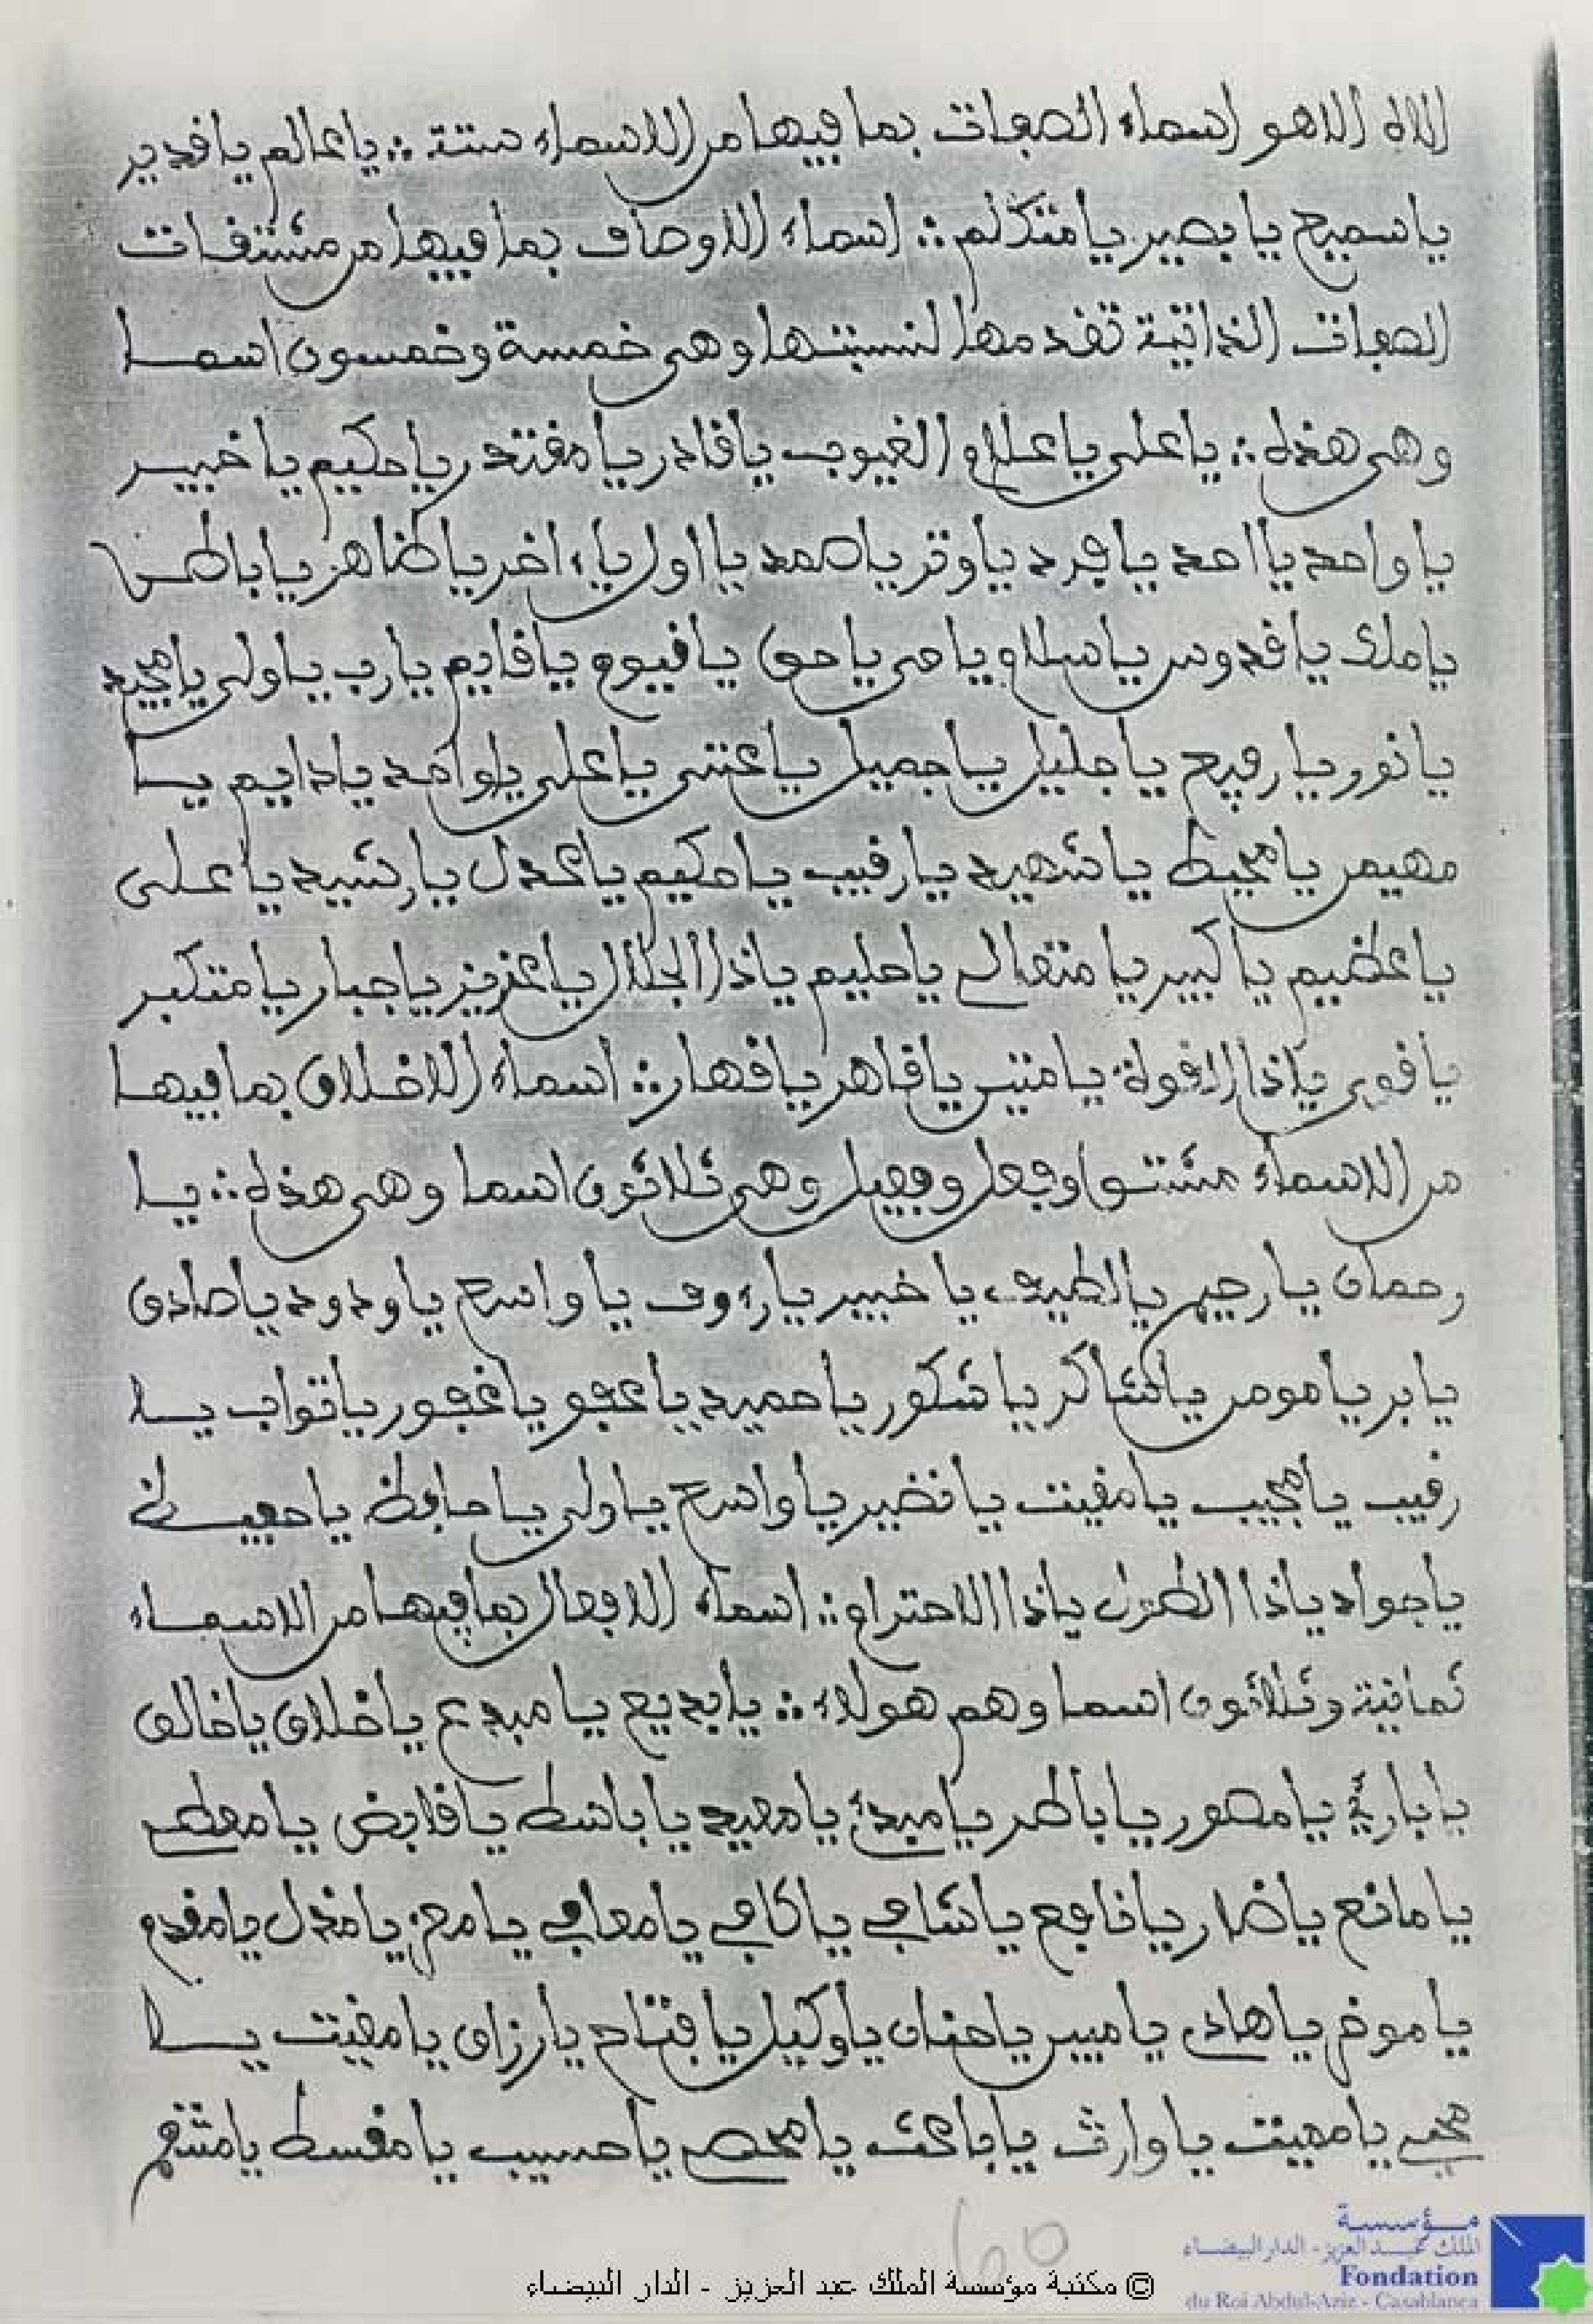 الاه الا هو اسماء الصفات بما فيها من الاسماء ستة ∴ يا عالم يا قدير
يا سميع يا بصير يا متكلم ∴ اسماء الاوصاف بما فيها من مشتقات
الصفات الذاتية تقدمها لنسبتها وهي خمسة وخمسون اسما
وهي هذه ∴ يا علي يا علام الغيوب يا قادر يا مقتدر يا حكيم يا خبير
يا واحد يا احد يا فرد يا وتر يا صمد يا اول يا ءاخر يا ظاهر يا باطن
يا ملك يا قدوس يا سلام يا حي يا حق يا قيوم يا قايم يا رب يا ولي يا مجيد
يا نور يا رفيع يا جليل يا جميل يا غني يا علي يا واحد يا دايم يا
مهيمن يا محيط يا شهيد يا رقيب يا حكيم يا عدل يا رشيد يا علي
يا عظيم يا كبير يا متعال يا حليم يا ذا الجلال يا عزيز يا جبار يا متكبر
يا قوي يا ذا القوة يا متين يا قاهر يا قهار ∴ اسماء الاخلاق بما فيها
من الاسماء مشتق وفعل وفعيل وهي ثلاثون اسما وهي هذه ∴ يا
رحمان يا رحيم يا لطيف يا خبير يا رءوف يا واسع يا ودود يا صادق
يا بر يا مومن يا شاكر يا شكور يا حميد يا عفو يا غفور يا تواب يا
رقيب يا مجيب يا مقيت يا نضير يا واسع يا ولي يا حافظ يا حفيظ
يا جواد يا ذا الطول يا ذا الاحترام ∴ اسماء الافعال بما فيها من الاسماء
ثمانية وثلاثون اسما وهم هولاء ∴ يا بديع يا مبدع يا خلاق يا خالق
يا بارئ يا مصور يا باطر يا مبدئ يا معيد يا باسط يا قابض يا معطي
يا مانع يا ضار يا نافع يا شافي يا كافي يا معافي يا معز يا مذل يا مقدم
يا موخر يا هادي يا مبين يا حنان يا وكيل يا فتاح يا رزاق يا مقيت يا
محيي يا مميت يا وارث يا باعث يا محصي يا حسيب يا مقسط يا منتقم
60
© مكتبة مؤسسة الملك عبد العزيز - الدار البيضاء
مؤسسة
الملك عبد العزيز - الدار البيضاء
Fondation
du Roi Abdul-Aziz - Casablanca